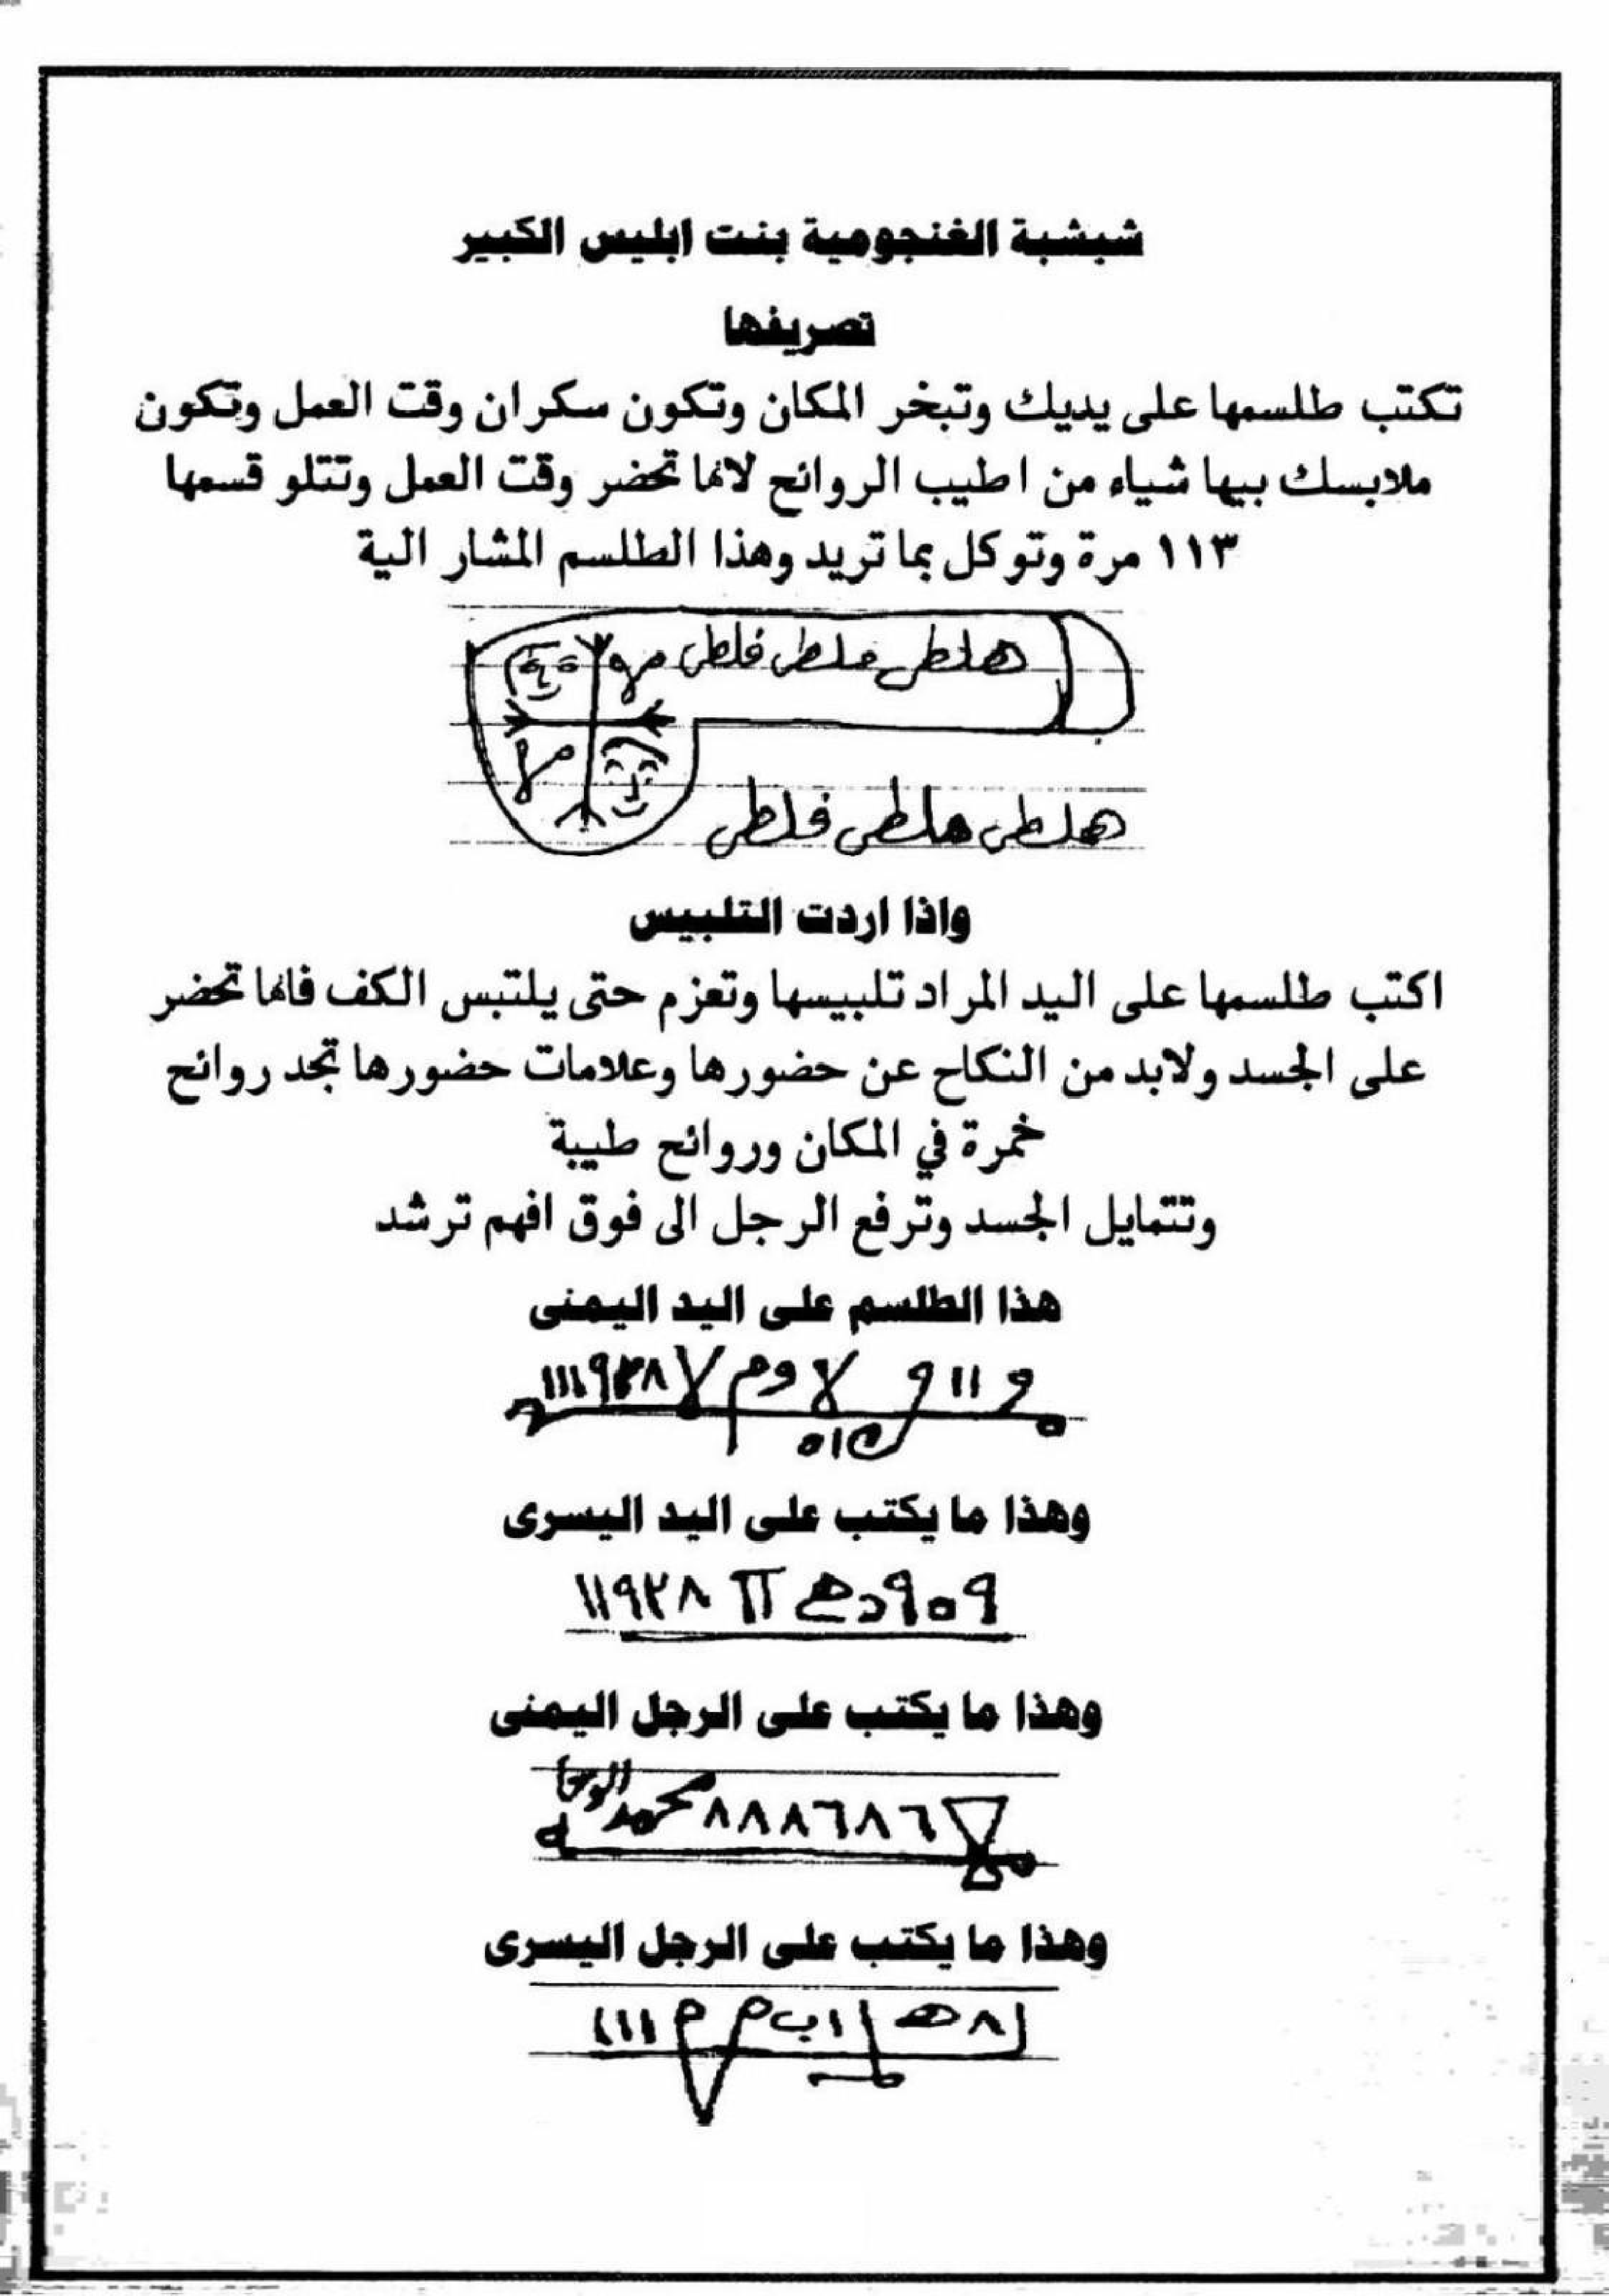 شبشبة الغنجومية بنت ابليس الكبير
تصريفها
تكتب طلسمها على يديك وتبخر المكان وتكون سكران وقت العمل وتكون
ملابسك بيها شياء من اطيب الروائح لانها تحضر وقت العمل وتتلو قسمها
١١٣ مرة وتوكل بما تريد وهذا الطلسم المشار الية
هلطى هلطى فلطى
واذا اردت التلبيس
اكتب طلسمها على اليد المراد تلبيسها وتعزم حتى يلتبس الكف فانها تحضر
على الجسد ولابد من النكاح عن حضورها وعلامات حضورها تجد روائح
خمرة في المكان وروائح طيبة
وتتمايل الجسد وترفع الرجل الى فوق افهم ترشد
هذا الطلسم على اليد اليمنى
وهذا ما يكتب على اليد اليسرى
وهذا ما يكتب على الرجل اليمنى
٨٨٨٦٨٦ محمد الوحا
وهذا ما يكتب على الرجل اليسرى